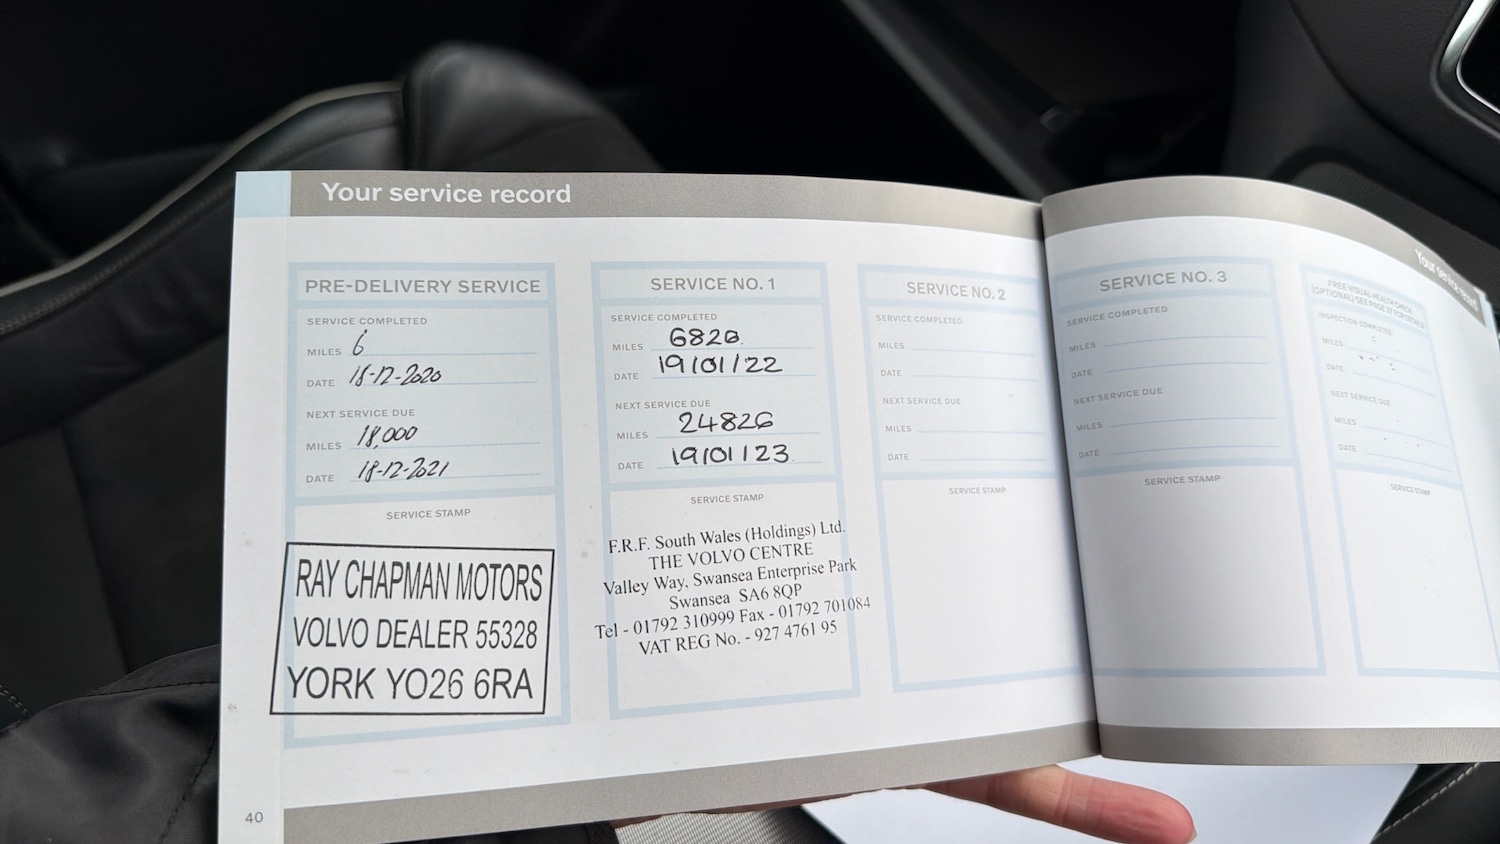 Your service record
PRE-DELIVERY SERVICE
SERVICE COMPLETED
MILES 6
DATE 18-12-2020
NEXT SERVICE DUE
MILES 18,000
DATE 18-12-2021
SERVICE STAMP
RAY CHAPMAN MOTORS
VOLVO DEALER 55328
YORK YO26 6RA
40
SERVICE NO. 1
SERVICE COMPLETED
MILES 6826.
DATE 19/01/22
NEXT SERVICE DUE
MILES 24826
DATE 19/01/23
SERVICE STAMP
F.R.F. South Wales (Holdings) Ltd.
THE VOLVO CENTRE
Valley Way, Swansea Enterprise Park
Swansea SA6 8QP
Tel - 01792 310999 Fax - 01792 701084
VAT REG No. - 927 4761 95
SERVICE NO. 2
SERVICE COMPLETED
MILES
DATE
NEXT SERVICE DUE
MILES
DATE
SERVICE STAMP
Your service record
SERVICE NO. 3
SERVICE COMPLETED
MILES
DATE
NEXT SERVICE DUE
MILES
DATE
SERVICE STAMP
FREE VISUAL HEALTH CHECK
(OPTIONAL) SEE PAGE 27 FOR DETAILS
INSPECTION COMPLETED
MILES
DATE
NEXT SERVICE DUE
MILES
DATE
SERVICE STAMP